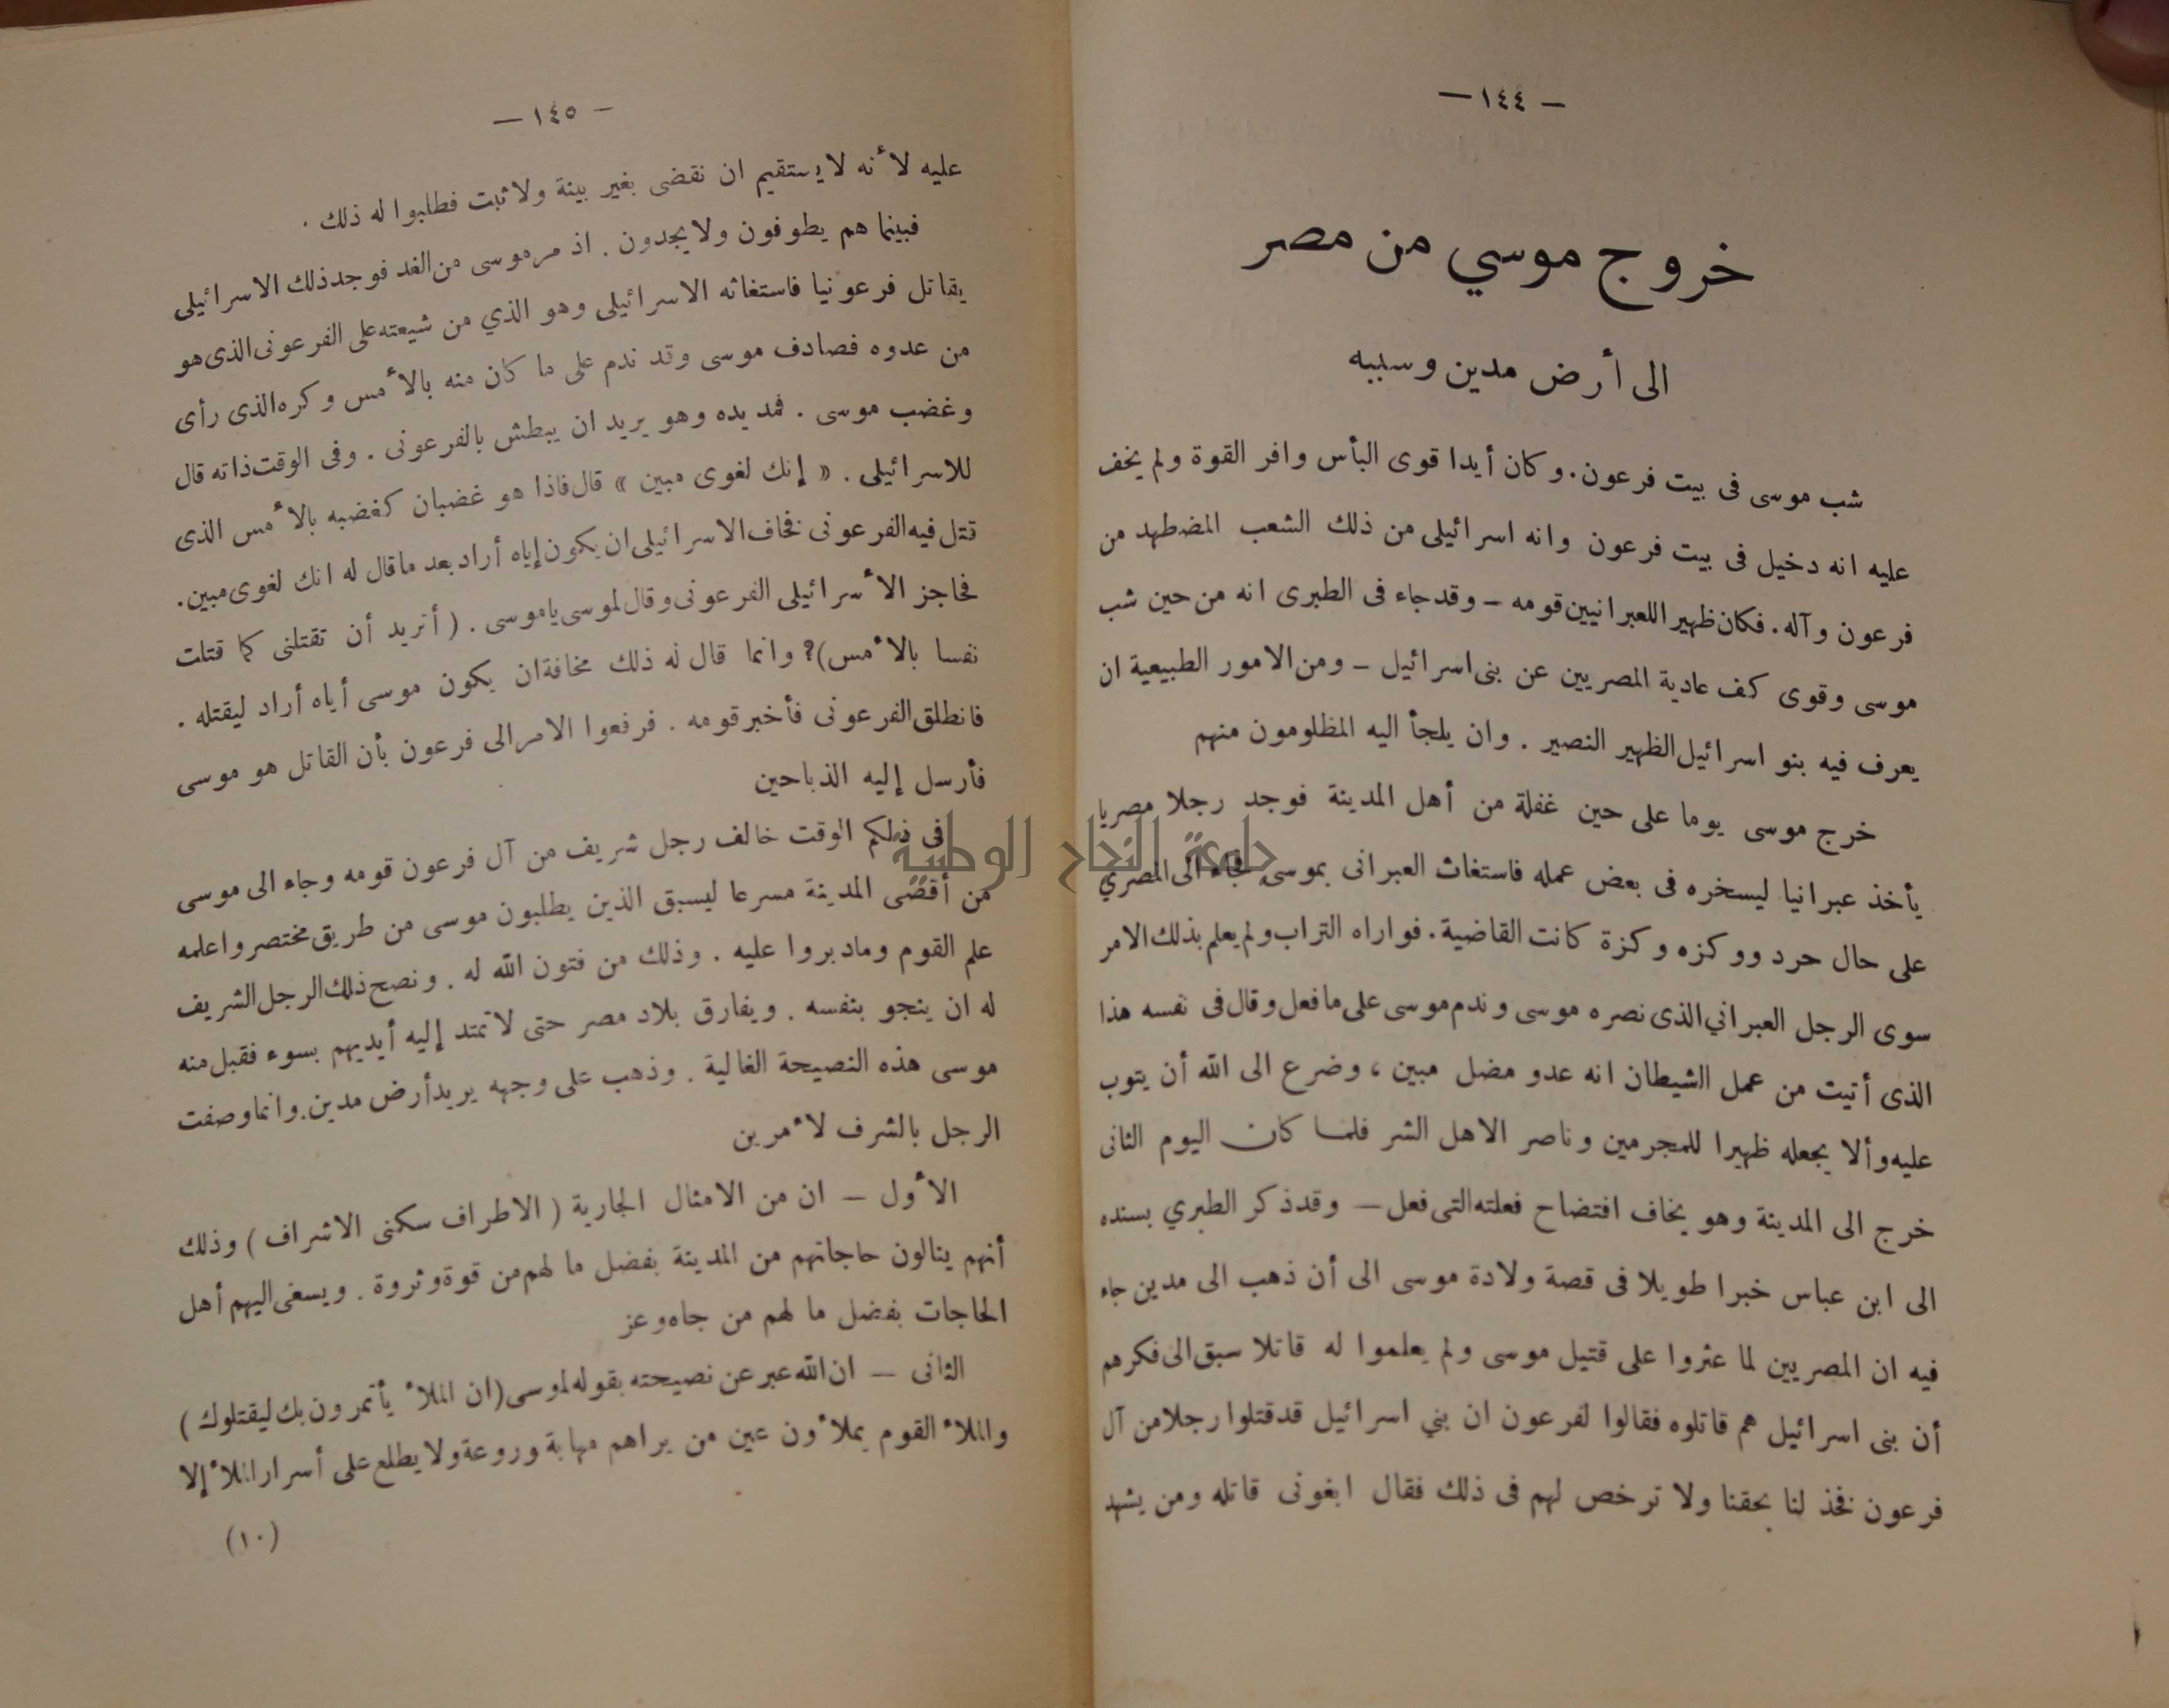 — ١٤٤ —
خروج موسي من مصر
الى أرض مدين وسببه
شب موسى فى بيت فرعون. وكان أيدا قوى البأس وافر القوة ولم يخف
عليه انه دخيل فى بيت فرعون وانه اسرائيلى من ذلك الشعب المضطهد من
فرعون وآله. فكان ظهير اللعبرانيين قومه – وقد جاء فى الطبرى انه من حين شب
موسى وقوى كف عادية المصريين عن بنى اسرائيل – ومن الامور الطبيعية ان
يعرف فيه بنو اسرائيل الظهير النصير . وان يلجأ اليه المظلومون منهم
خرج موسى يوما على حين غفلة من أهل المدينة فوجد رجلا مصريا
يأخذ عبرانيا ليسخره فى بعض عمله فاستغاث العبرانى بموسى فجاء الى المصري
على حال حرد ووكزه وكزة كانت القاضية. فواراه التراب ولم يعلم بذلك الامر
سوى الرجل العبراني الذى نصره موسى وندم موسى على ما فعل وقال فى نفسه هذا
الذى أتيت من عمل الشيطان انه عدو مضل مبين ، وضرع الى الله أن يتوب
عليه وألا يجعله ظهيرا للمجرمين وناصر الاهل الشر فلما كان اليوم الثانى
خرج الى المدينة وهو يخاف افتضاح فعلته التى فعل — وقد ذكر الطبري بسنده
الى ابن عباس خبرا طويلا فى قصة ولادة موسى الى أن ذهب الى مدين جاء
فيه ان المصريين لما عثروا على قتيل موسى ولم يعلموا له قاتلا سبق الى فكرهم
أن بنى اسرائيل هم قاتلوه فقالوا لفرعون ان بني اسرائيل قد قتلوا رجلا من آل
فرعون فخذ لنا بحقنا ولا ترخص لهم فى ذلك فقال ابغونى قاتله ومن يشهد
— ١٤٥ —
عليه لأنه لا يستقيم ان نقضى بغير بينة ولا ثبت فطلبوا له ذلك .
فبينما هم يطوفون ولا يجدون . اذ مر موسى من الغد فوجد ذلك الاسرائيلى
يقاتل فرعونيا فاستغاثه الاسرائيلى وهو الذي من شيعته على الفرعونى الذى هو
من عدوه فصادف موسى وقد ندم على ما كان منه بالأمس وكره الذى رأى
وغضب موسى . فمد يده وهو يريد ان يبطش بالفرعونى . وفى الوقت ذاته قال
للاسرائيلى . « إنك لغوى مبين » قال فاذا هو غضبان كغضبه بالأمس الذى
قتل فيه الفرعونى فخاف الاسرائيلى ان يكون إياه أراد بعد ما قال له انك لغوى مبين.
فحاجز الأسرائيلى الفرعونى وقال لموسى يا موسى . (أتريد أن تقتلنى كما قتلت
نفسا بالأمس)؟ وانما قال له ذلك مخافة ان يكون موسى أياه أراد ليقتله .
فانطلق الفرعونى فأخبر قومه . فرفعوا الامر الى فرعون بأن القاتل هو موسى
فأرسل إليه الذباحين
فى ذلكم الوقت خالف رجل شريف من آل فرعون قومه وجاء الى موسى
من أقصى المدينة مسرعا ليسبق الذين يطلبون موسى من طريق مختصر واعلمه
علم القوم وما دبروا عليه . وذلك من فتون الله له . ونصح ذلك الرجل الشريف
له ان ينجو بنفسه . ويفارق بلاد مصر حتى لا تمتد إليه أيديهم بسوء فقبل منه
موسى هذه النصيحة الغالية . وذهب على وجهه يريد أرض مدين. وانما وصفت
الرجل بالشرف لأمرين
الأول — ان من الامثال الجارية (الاطراف سكنى الاشراف) وذلك
أنهم ينالون حاجاتهم من المدينة بفضل ما لهم من قوة وثروة . ويسعى اليهم أهل
الحاجات بفضل ما لهم من جاه وعز
الثانى — ان الله عبر عن نصيحته بقوله لموسى (ان الملأ يأتمرون بك ليقتلوك)
والملأ القوم يملأون عين من يراهم مهابة وروعة ولا يطلع على أسرار الملأ إلا
(١٠)
جامعة النجاح الوطنية